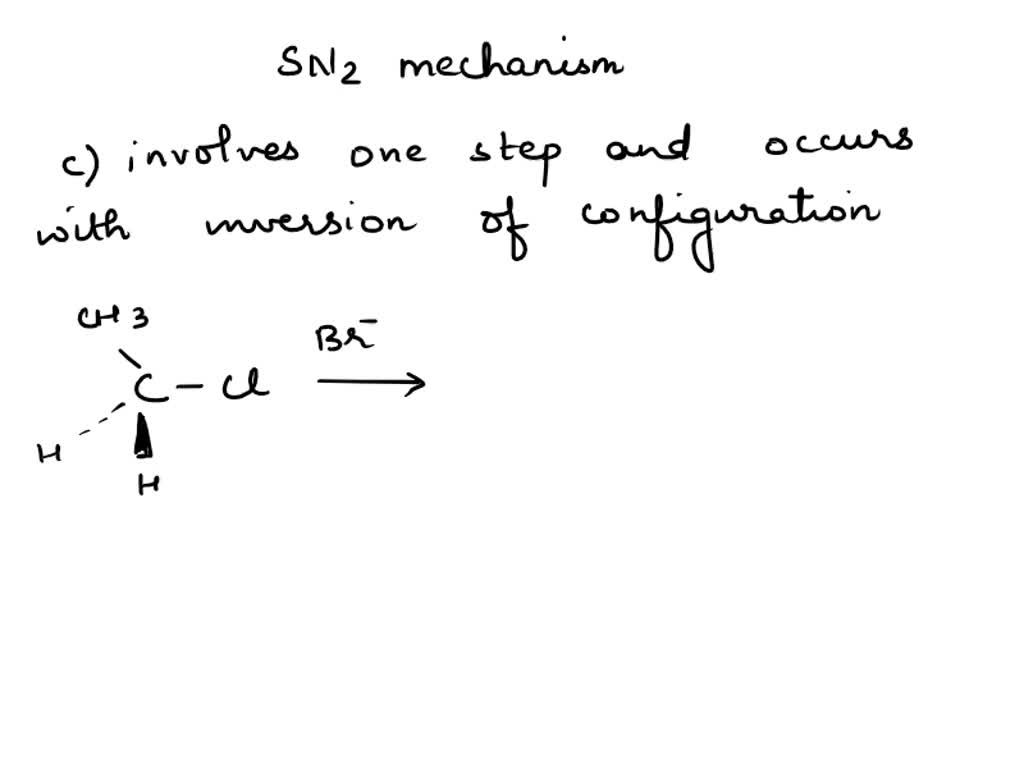 SN2 mechanism
c) involves one step and occurs
with inversion of configuration
CH3
Br⁻
C – Cl
H
H